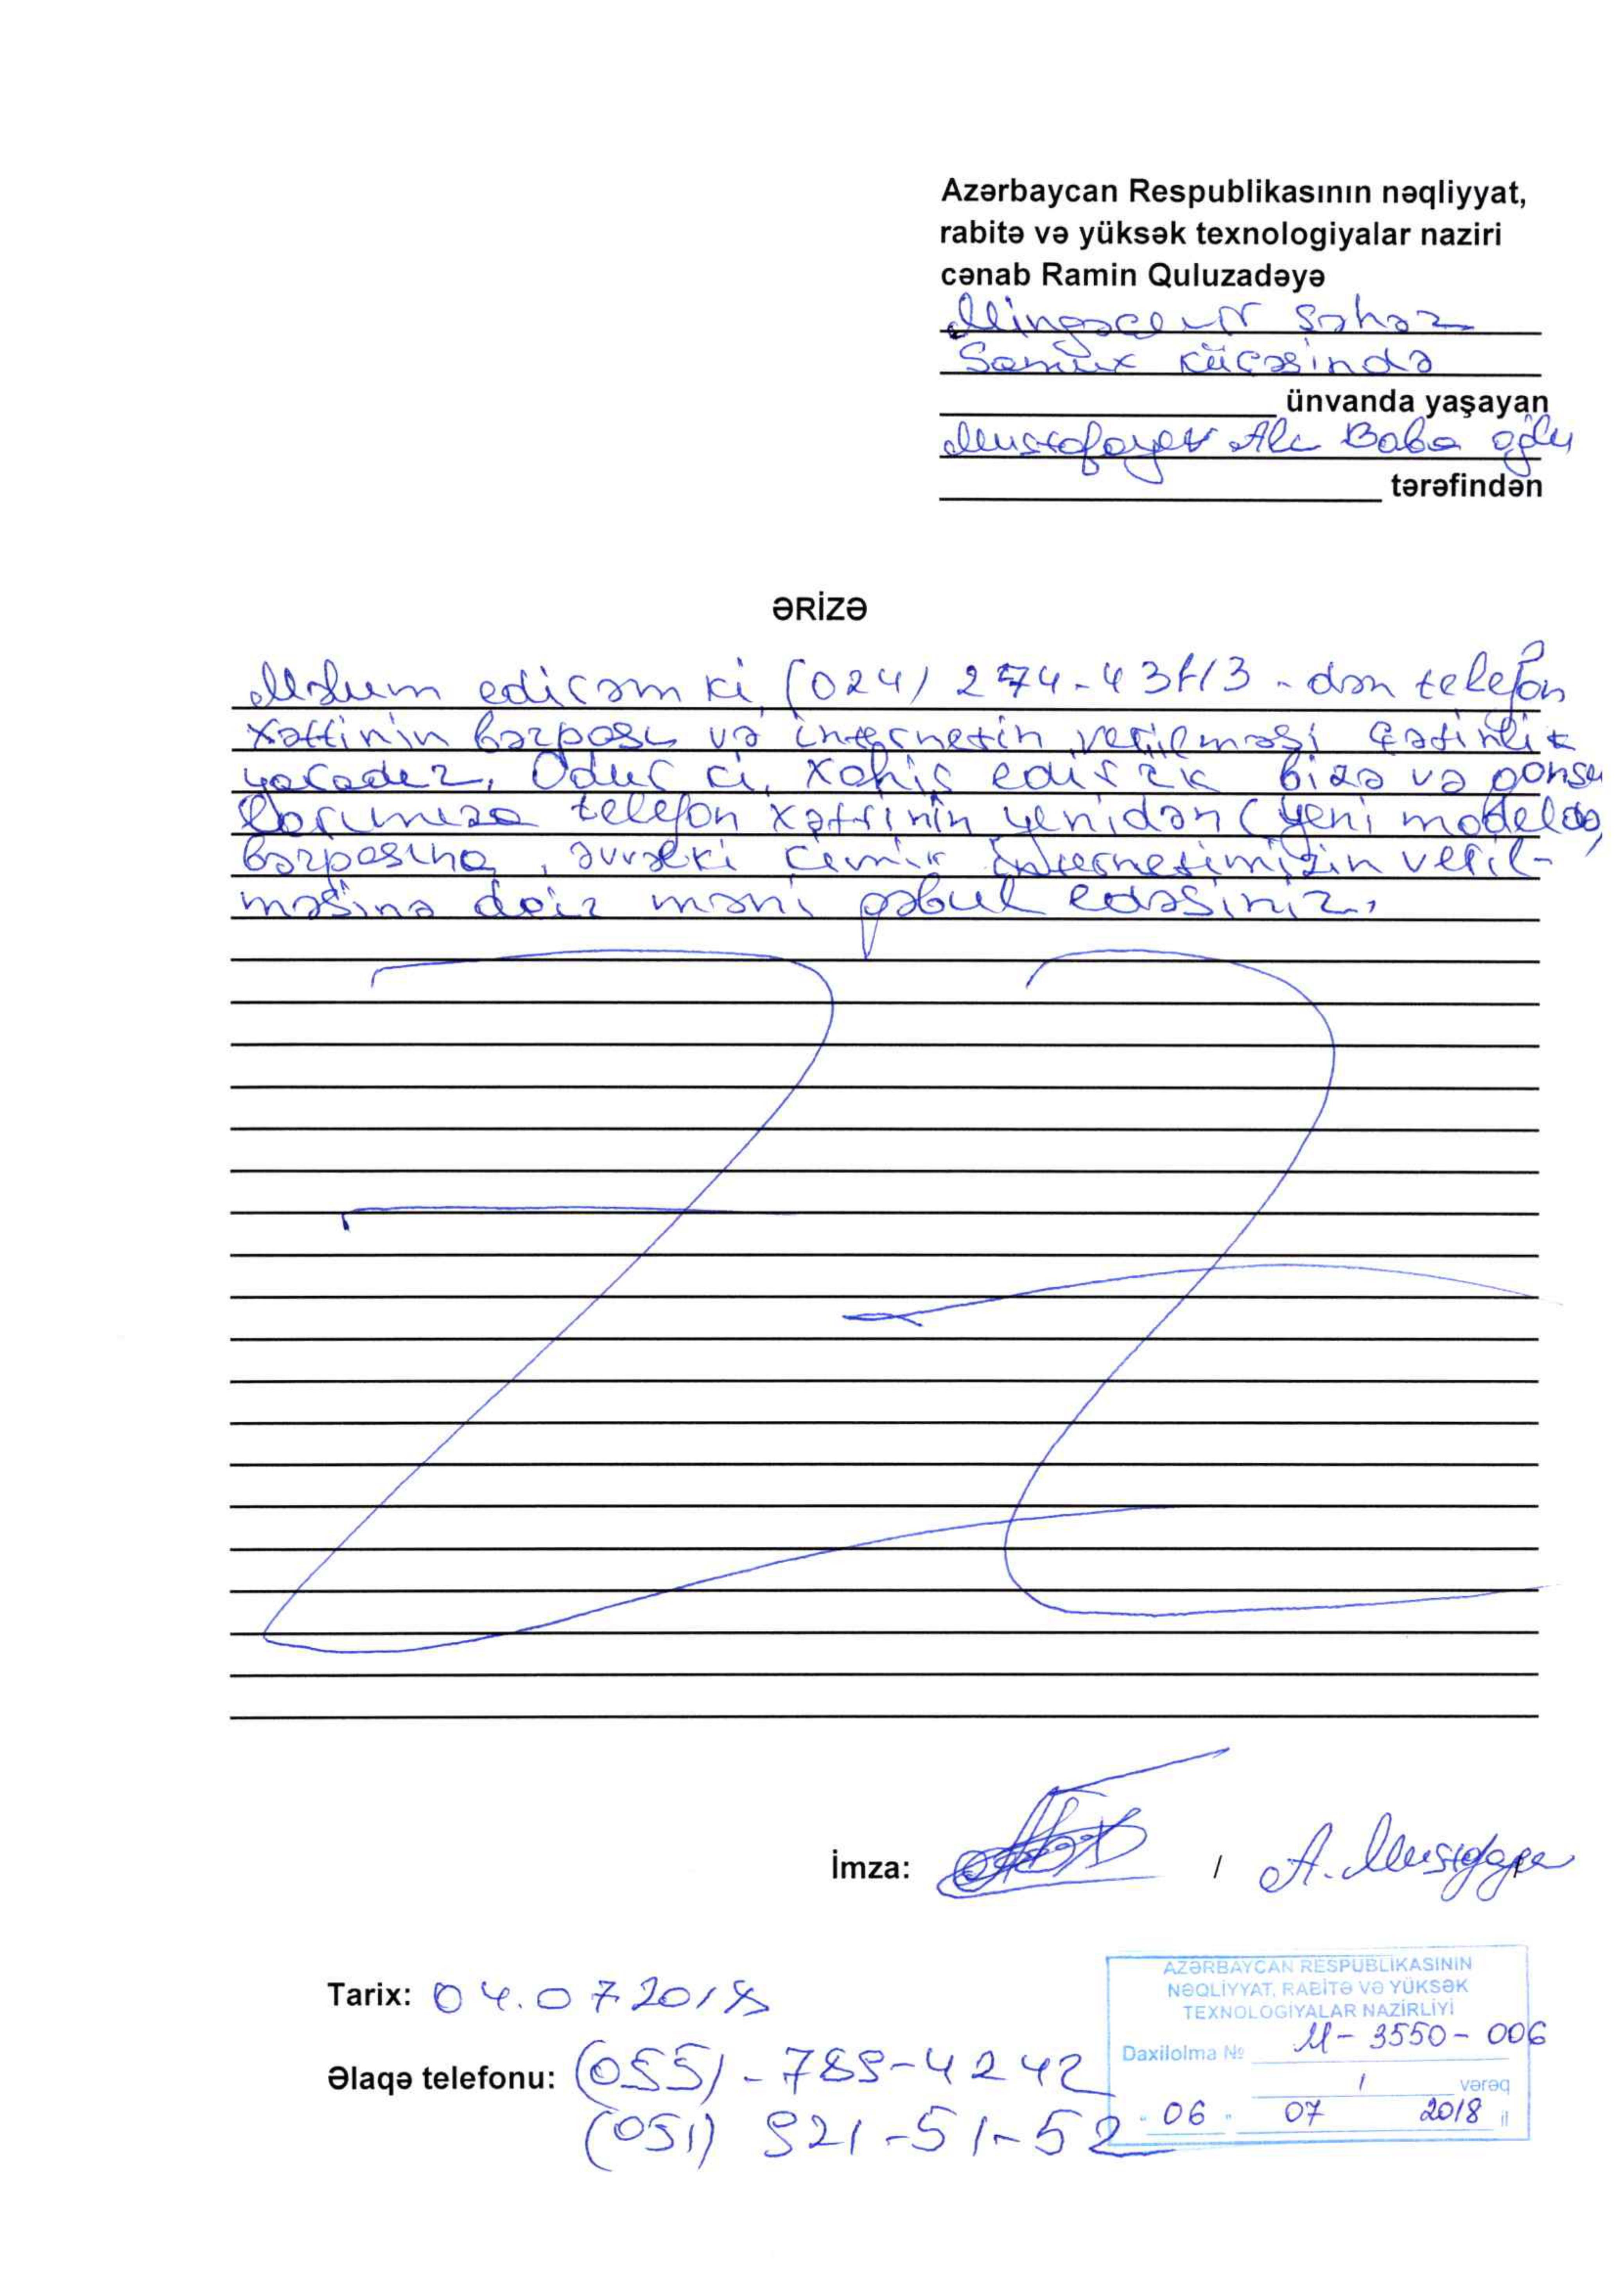 Azərbaycan Respublikasının nəqliyyat,
rabitə və yüksək texnologiyalar naziri
cənab Ramin Quluzadəyə
Mingəçevir şəhər
Samux küçəsində
ünvanda yaşayan
Mustafayev Ali Baba oğlu
tərəfindən
ƏRİZƏ
Məlum edirəm ki, (024) 274-43 - dən telefon
xəttinin bərpası və internetin verilməsi çətinlik
yaradır. Odur ki, xahiş edirik bizə və qonşu
larımıza telefon xəttinin yenidən (yeni modeldə)
bərpasına, əvvəlki internetimizin veril-
məsinə dair məni qəbul edəsiniz.
İmza: / A. Mustafaye
Tarix: 04.07 2018
Əlaqə telefonu: (055) - 789-4242
(051) 921-51-52
AZƏRBAYCAN RESPUBLİKASININ
NƏQLİYYAT, RABİTƏ VƏ YÜKSƏK
TEXNOLOGİYALAR NAZİRLİYİ
Daxilolma № M- 3550- 006
1 vərəq
06 07 2018 il